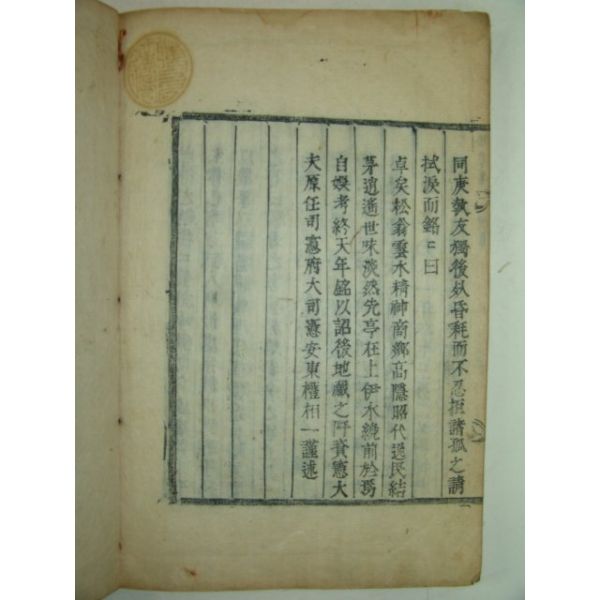 同庚執友獨後死昏耗而不忍拒諸孤之請
拭淚而銘〻曰
卓矣松翁雲水精神商鄉高隱昭代逸民結
茅逍遥世味淡然先亭在上伊水繞前於焉
自娛考終天年銘以詔後地藏之阡資憲大
夫原任司憲府大司憲安東權相一謹述